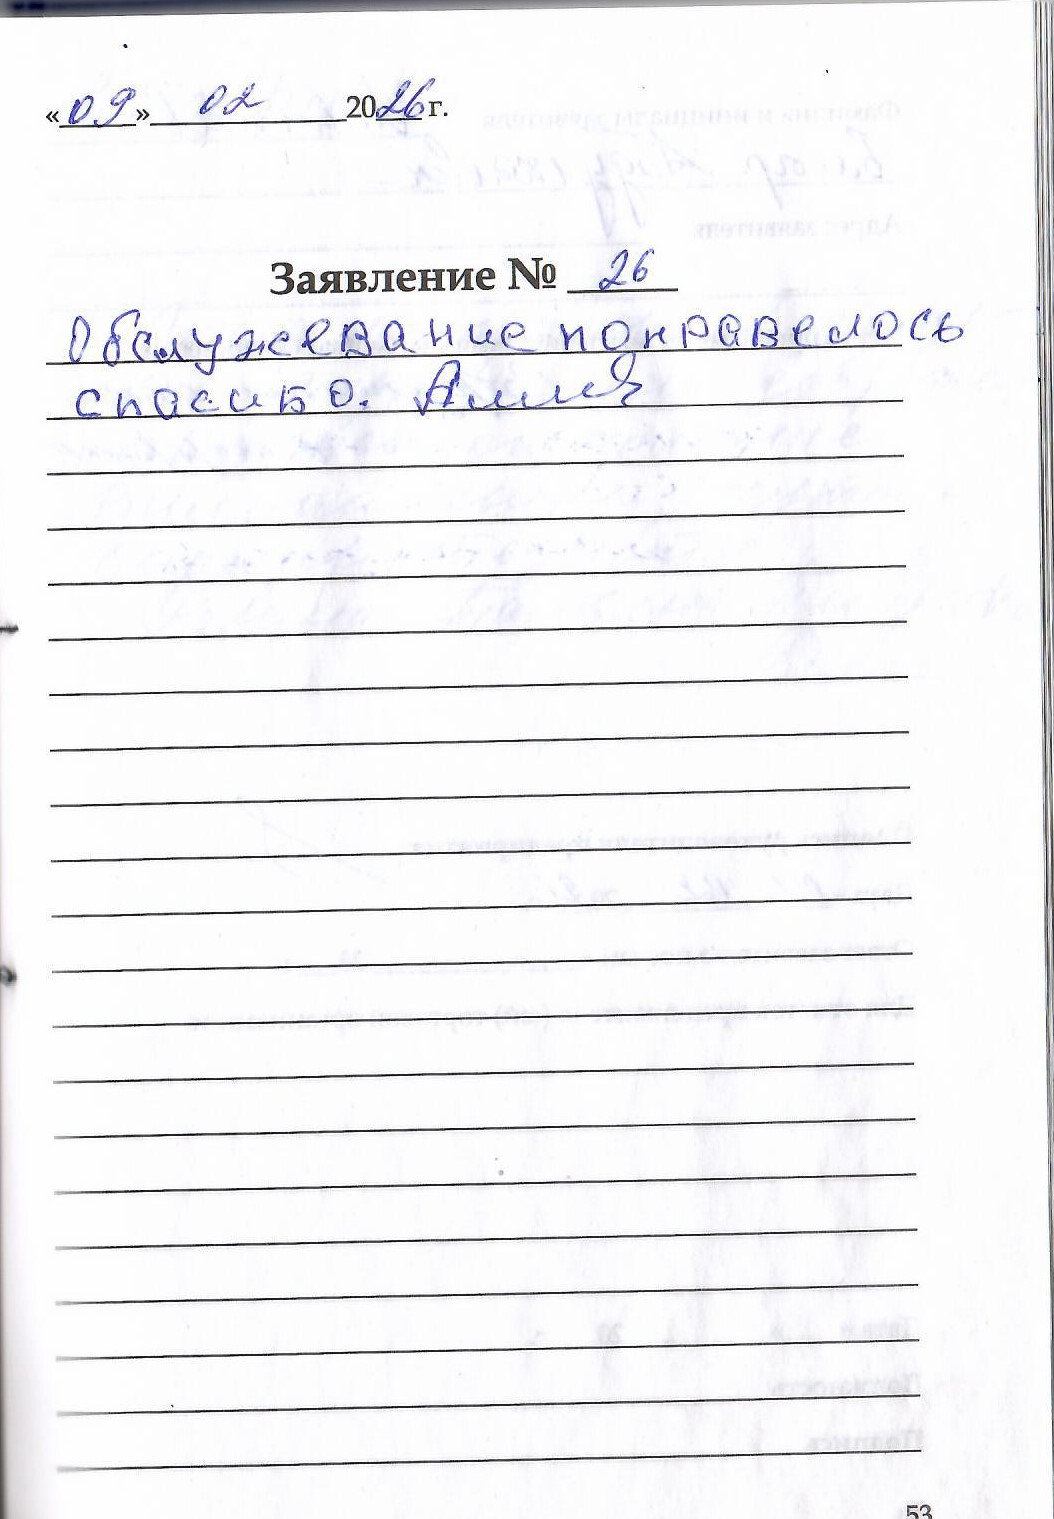 «09» 02 2026 г.
Заявление № 26
Обслужевание понравелось
спасибо. Алия
53